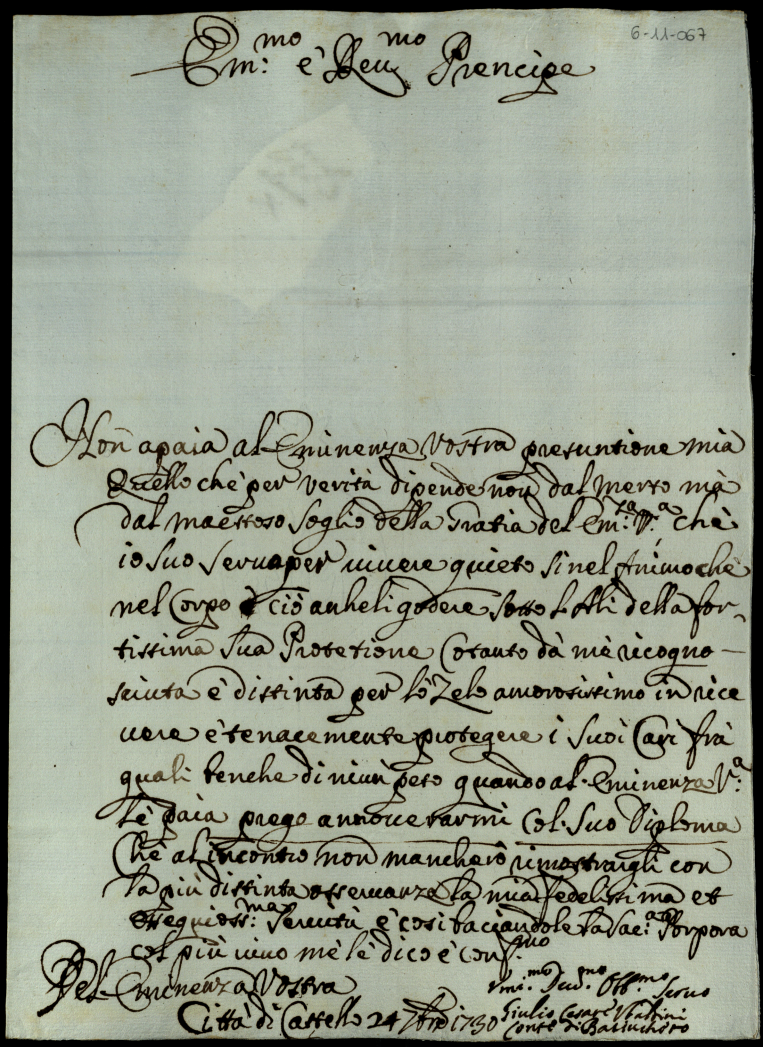 6-11-067
Em:mo è Reu.mo Prencipe
Non apaia al Eminenza Vostra presuntione mia
Quello chè per verità dipende non dal merto mà
dal maestoso soglio della Gratia del Em:za V:a chè
io suo seruo per uiuere quieto sì nel Animo chè
nel Corpo è ciò anheli godere sotto l'Ali della for-
tissima sua Protetione Cotanto dà mè ricogno-
sciuta è distinta per lò Zelo amorosissimo in rice
uere è tenacemente protegere i suoi Cari frà
quali benche di niun peso quando al Eminenza V:a
lè paia prego annouerarmi Col suo Diploma
Chè al incontro non mancherò rimostrargli con
la più distinta osseruanza la mia fedelissima et
ossequioss:ma seruitù è cosi baciandole la Sac:a Porpora
col più uiuo mè lè dico è conf.mo
Del Eminenza Vostra
Vmi:mo Deu:mo Obb:mo Seruo
Città di Castello 24 7bre 1730
Giulio Cesare
Conte di